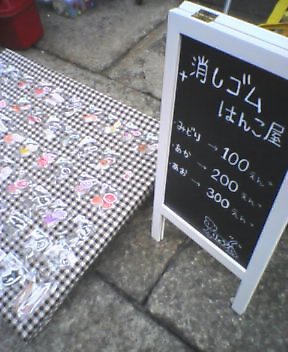 消しゴム
はんこ屋
・みどり → 100えん〜
・あか → 200えん〜
・あお → 300えん〜